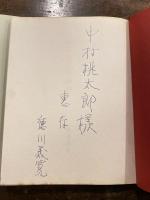 中村桃太郎様
恵存
德川義寛